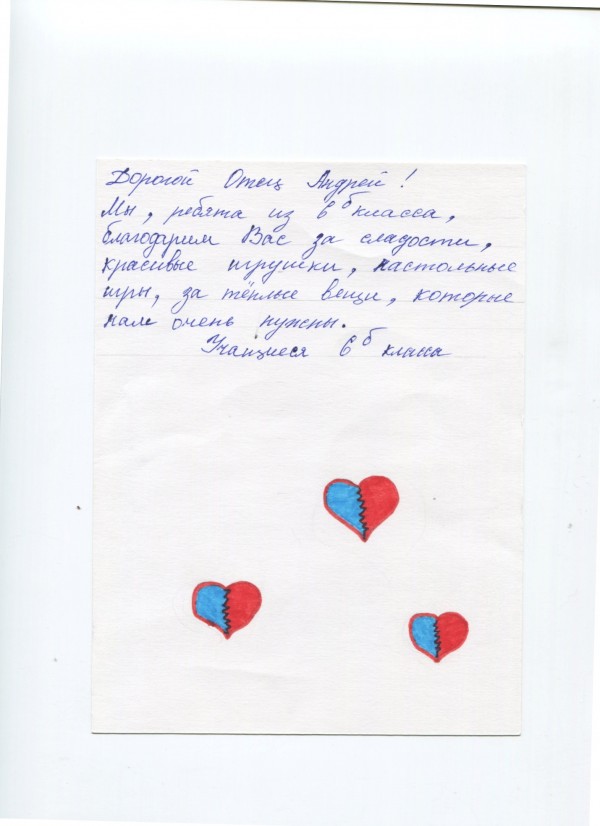 Дорогой Отец Андрей!
Мы, ребята из 6 б класса,
благодарим Вас за сладости,
красивые игрушки, настольные
игры, за тёплые вещи, которые
нам очень нужны.
Учащиеся 6 б класса